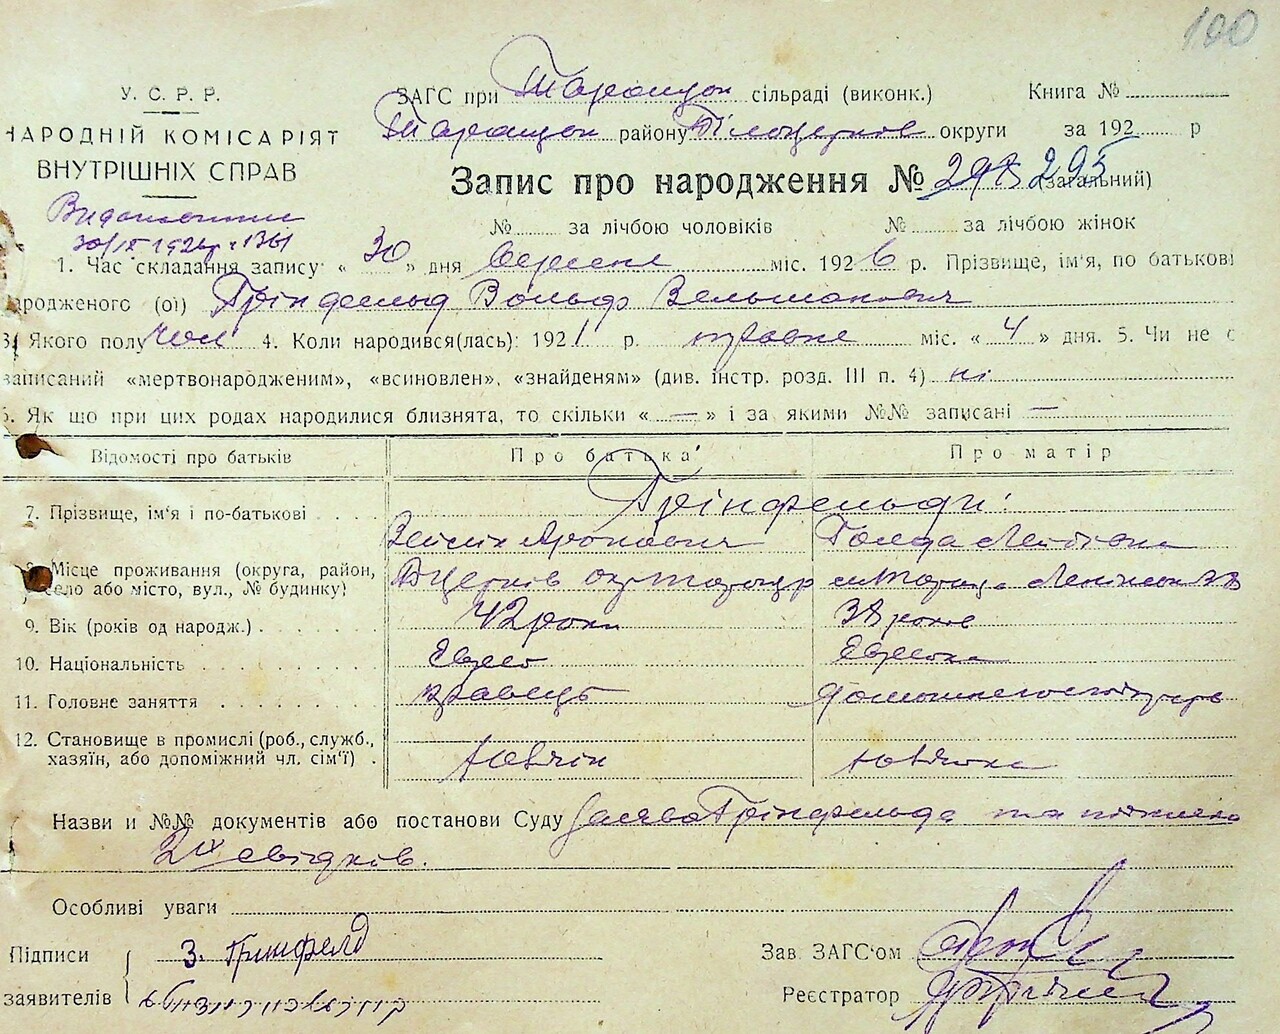 100
У. С. Р. Р.
НАРОДНІЙ КОМІСАРІЯТ
ВНУТРІШНІХ СПРАВ
ЗАГС при Таращан сільраді (виконк.) Книга №
Таращан району Білоцерков округи за 192 р
Запис про народження № 293 (загальний)
№ за лічбою чоловіків № за лічбою жінок
30/IX 1926р 1361
1. Час складання запису: « 30 » дня вересня міс. 1926 р. Прізвище, ім'я, по батькові
народженого (ої) Грінфельд Вольф
3. Якого полу чол 4. Коли народився(лась): 1921 р. травня міс. « 4 » дня. 5. Чи не є
записаний «мертвонародженим», «всиновлен», «знайденям» (див. інстр. розд. III п. 4) ні
6. Як що при цих родах народилися близнята, то скільки « — » і за якими №№ записані —
Відомості про батьків Про батька Про матір
7. Прізвище, ім'я і по-батькові Грінфельди:
Аронович Голда Лейбівна
8. Місце проживання (округа, район,
село або місто, вул., № будинку) БЦерків окр Таращ р
9. Вік (років од народж.) 42 роки 38 років
10. Національність Єврей Єврейка
11. Головне заняття кравець домашнє господарств
12. Становище в промислі (роб., служб.,
хазяїн, або допоміжний чл. сім'ї)
Назви и №№ документів або постанови Суду Заява Грінфельда та
2ох свідків.
Особливі уваги
Підписи З. Гринфелд Зав. ЗАГС'ом
заявителів Реєстратор